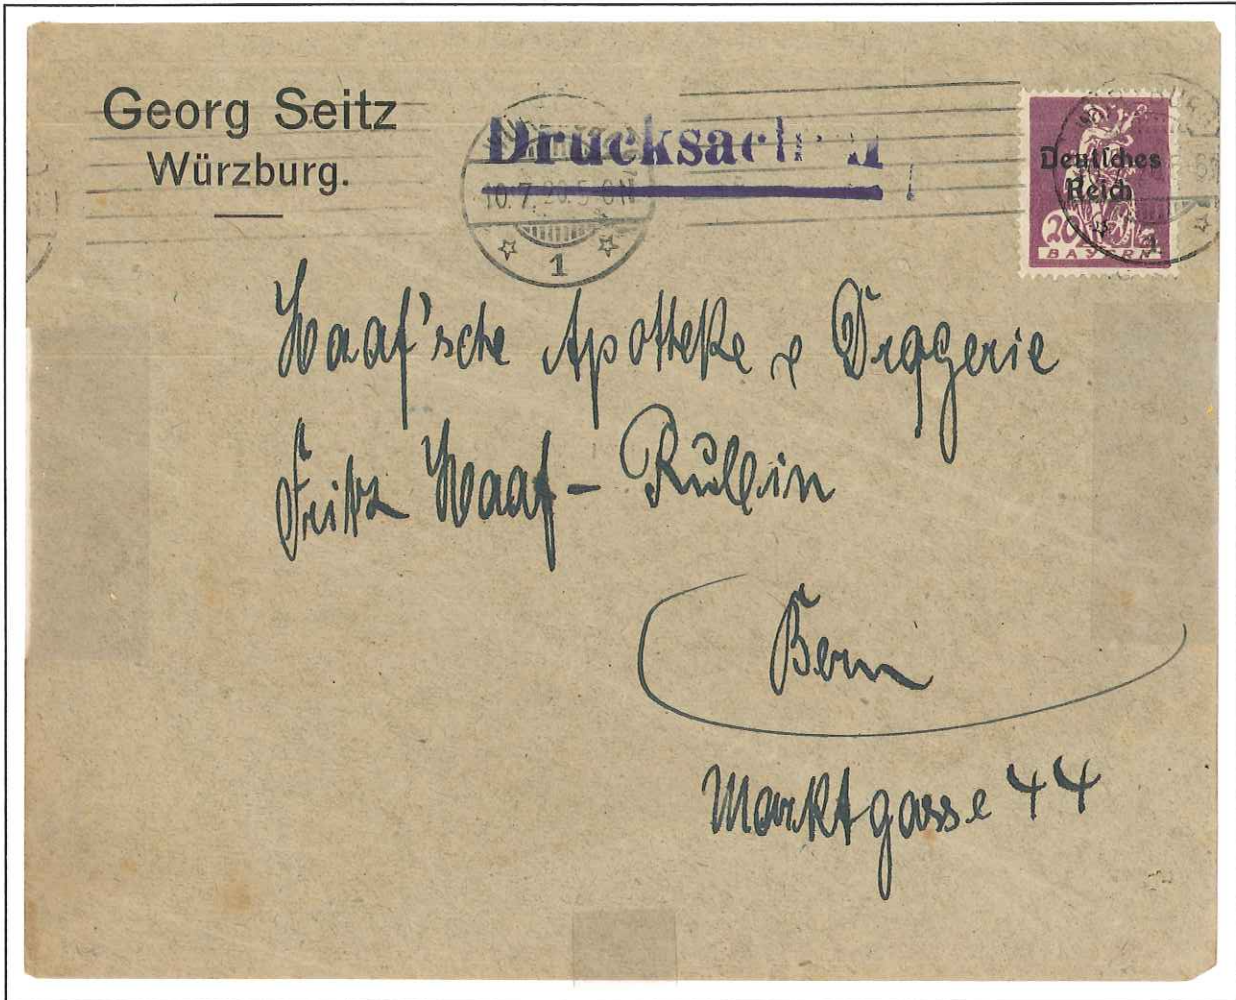 Georg Seitz
Würzburg.
Drucksachen
10.7.20.5-6N
1
Deutsches
Reich
20
BAYERN
1
Haaf'sche Apotheke & Drogerie
Fritz Haaf - Rullin
Bern
Marktgasse 44